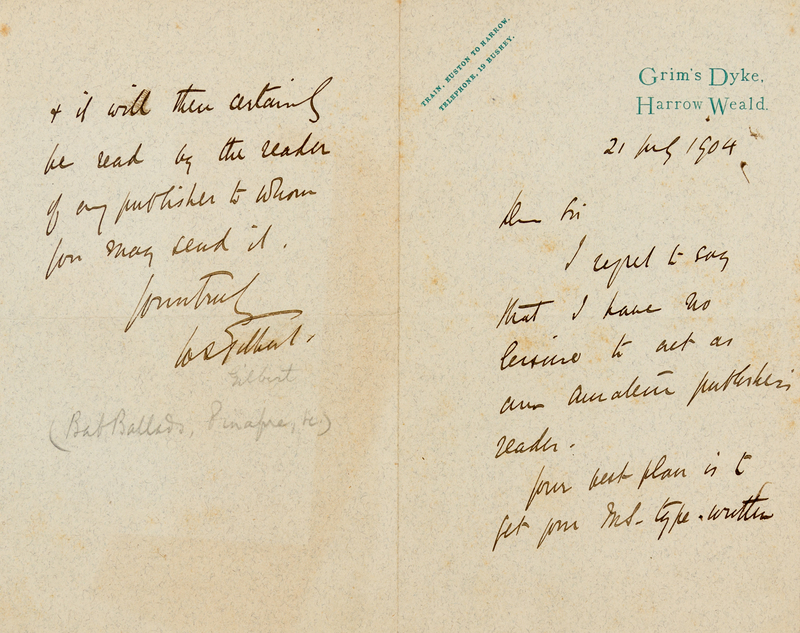 TRAIN, EUSTON TO HARROW.
TELEPHONE, 19 BUSHEY.
Grim's Dyke,
Harrow Weald.
21 July 1904
Dear Sir
I regret to say
that I have no
leisure to act as
an amateur publisher's
reader.
Your best plan is to
get your MS. type-written
& it will then certainly
be read by the reader
of any publisher to whom
you may send it.
Yours truly
WS Gilbert.
Gilbert
(Bab Ballads, Pinafore, &c)